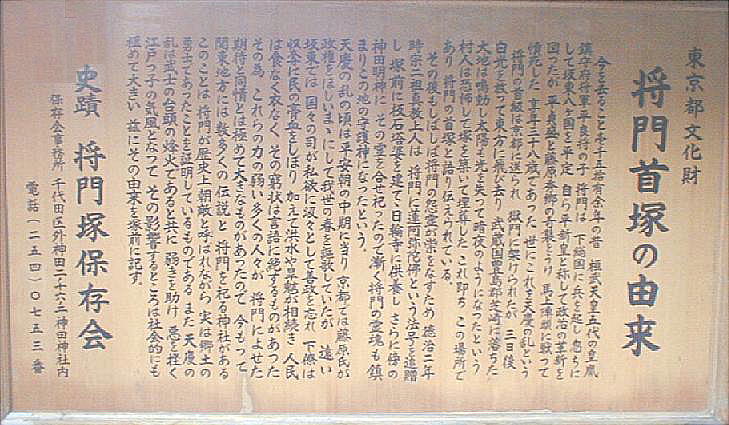 東京都文化財
将門首塚の由来
今を去ること壱千五拾有余年の昔 桓武天皇五代の皇胤
鎮守府将軍平良将の子将門は 下総国に兵を起し忽ちに
して坂東八ヶ国を平定 自ら平新皇と称して政治の革新を
図ったが 平貞盛と藤原秀郷の奇襲をうけ 馬上陣頭に戦って
憤死した 享年三十八歳であった 世にこれを天慶の乱という
将門の首級は京都に送られ 獄門に架けられたが 三日後
白光を放って東方に飛び去り 武蔵国豊島郡芝崎に落ちた
大地は鳴動し太陽も光を失って暗夜のようになったという
村人は恐怖して塚を築いて埋葬した これ即ち この場所で
あり 将門の首塚と語り伝えられている
その後もしばしば将門の怨霊が祟をなすため 徳治二年
時宗二祖真教上人は 将門に蓮阿弥陀佛という法号を追贈
し 塚前に板石塔婆を建て 日輪寺に供養し さらに傍の
神田明神に その霊を合せ祀ったので漸く将門の霊魂も鎮
まりこの地の守護神になったという
天慶の乱の頃は平安朝の中期に当り 京都では藤原氏が
政権をほしいままにして我世の春を謳歌していたが 遠い
坂東では 国々の司が私欲に汲々として善政を忘れ 下僚は
収奪に民の膏血をしぼり 加えて洪水や旱魃が相続き 人民
は食なく衣なく その窮状は言語に絶するものがあった
その為 これらの力の弱い多くの人々が 将門によせた
期待と同情とは極めて大きなものがあったので 今もって
関東地方には数多くの伝説と 将門を祀る神社がある
このことは 将門が歴史上朝敵と呼ばれながら 実は郷土の
勇士であったことを証明しているものである また 天慶の
乱は武士の台頭の烽火であると共に 弱きを助け 悪を挫く
江戸っ子の気風となって その影響するところは社会的にも
極めて大きい 茲にその由来を塚前に記す
史蹟 将門塚保存会
保存会事務所 千代田区外神田二ノ十六ノ二 神田神社内
電話(二五四)〇七五三番